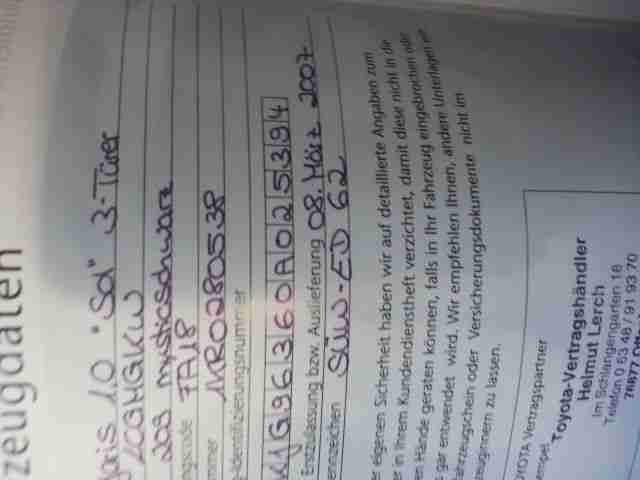 zeugdaten
aris 1.0 "Sol" 3-Türer
209 mysticschwarz
ngscode FA18
mmer 1KR0280538
-Identifizierungsnummer
KJG96360A025394
Erstzulassung bzw. Auslieferung 08. März 2007
ennzeichen SÜW-ED 62
er eigenen Sicherheit haben wir auf detaillierte Angaben zum
er in Ihrem Kundendienstheft verzichtet, damit diese nicht in die
en Hände geraten können, falls in Ihr Fahrzeug eingebrochen oder
s gar entwendet wird. Wir empfehlen Ihnen, andere Unterlagen wie
ahrzeugschein oder Versicherungsdokumente nicht im
zeuginnern zu lassen.
OYOTA Vertragspartner
empel
Toyota-Vertragshändler
Helmut Lerch
Im Schlangengarten 18
Telefon 0 63 48 / 91 93 70